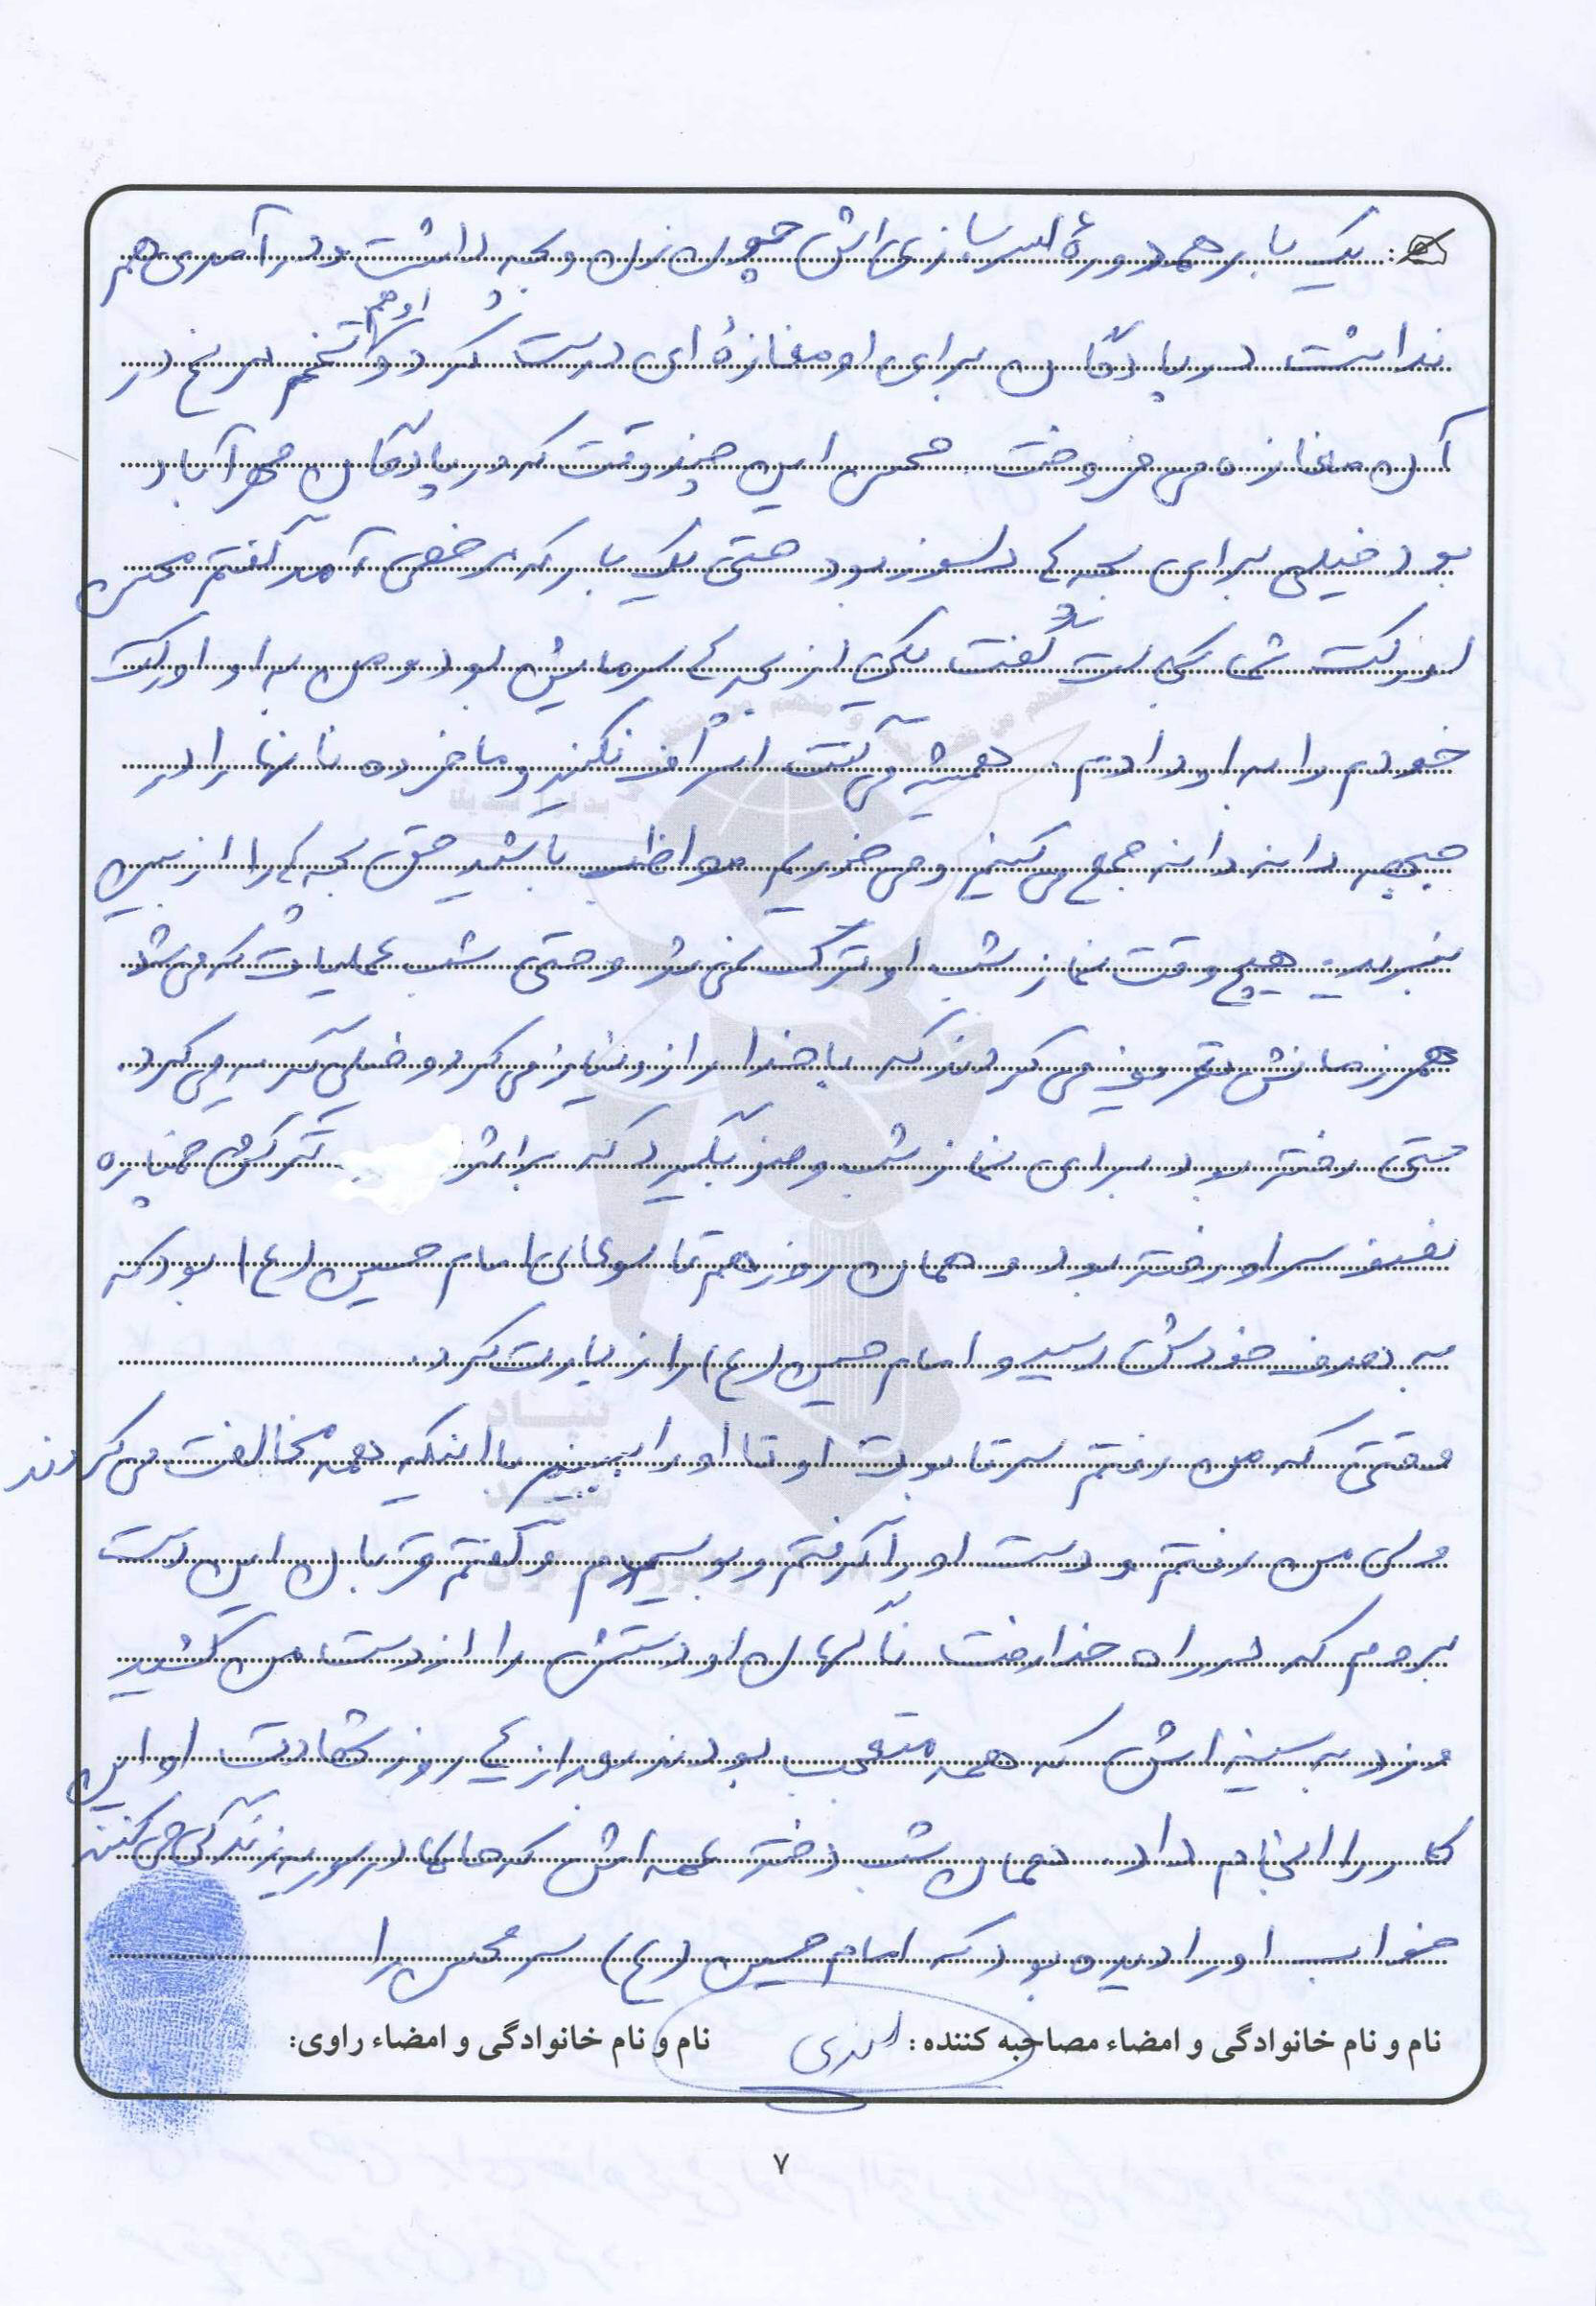 یک بار هم دورهٔ سربازی اش چون زن و بچه داشت و درآمدی هم
نداشت در پادگان برای او مغازهٔ ای درست کرد و او هم تخم مرغ در
آن مغازه می فروخت. محسن این چند وقت که در پادگان مهرآباد
بود خیلی برای بچه ها دلسوز بود حتی یک بار که مرخصی آمد گفتم محسن
اورکت شما کجاست گفت یکی از بچه ها سرمایش بود و من به او اورکت
خودم را به او دادم. همیشه می گفت اسراف نکنید و ما خرده نانها را در
جبهه دانه دانه جمع می کنیم و می خوریم مواظب باشید حق بچه ها را از بین
نبرید. هیچ وقت نماز شب او ترک نمی شد و حتی شب عملیات که می شد
همرزمانش تعریف می کردند که با خدا راز و نیاز می کرد و خیلی گریه می کرد.
حتی رفته بود برای نماز شب وضو بگیرد که براثر ترکش خمپاره
نصف سر او رفته بود و همان روز هم تاسوعای امام حسین (ع) بود که
به هدف خودش رسید و امام حسین (ع) را زیارت کرد.
وقتی که من رفتم سر تابوت او تا او را ببینم با اینکه همه مخالفت می کردند
ولی من رفتم و دست او را گرفتم و بوسیدم و گفتم قربان این دست
بروم که در راه خدا رفت ناگهان او دستش را از دست من کشید
و زد به سینه اش که همه متعجب بودند بعد از ۴ روز شهادت او این
کار را انجام داد. همان شب دختر عمه اش که در سوریه زندگی می کنند
خواب او را دیده بود که امام حسین (ع) سر محسن را
نام و نام خانوادگی و امضاء مصاحبه کننده: نام و نام خانوادگی و امضاء راوی:
۷